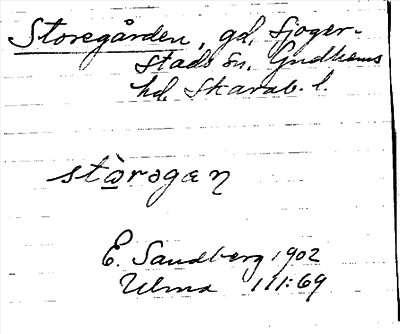 Storegården, gd, Sjoger-
stads sn. Gudhems
hd. Skarab. l.
stòrəgæɳ
E. Sandberg 1902
Ulma 111:69